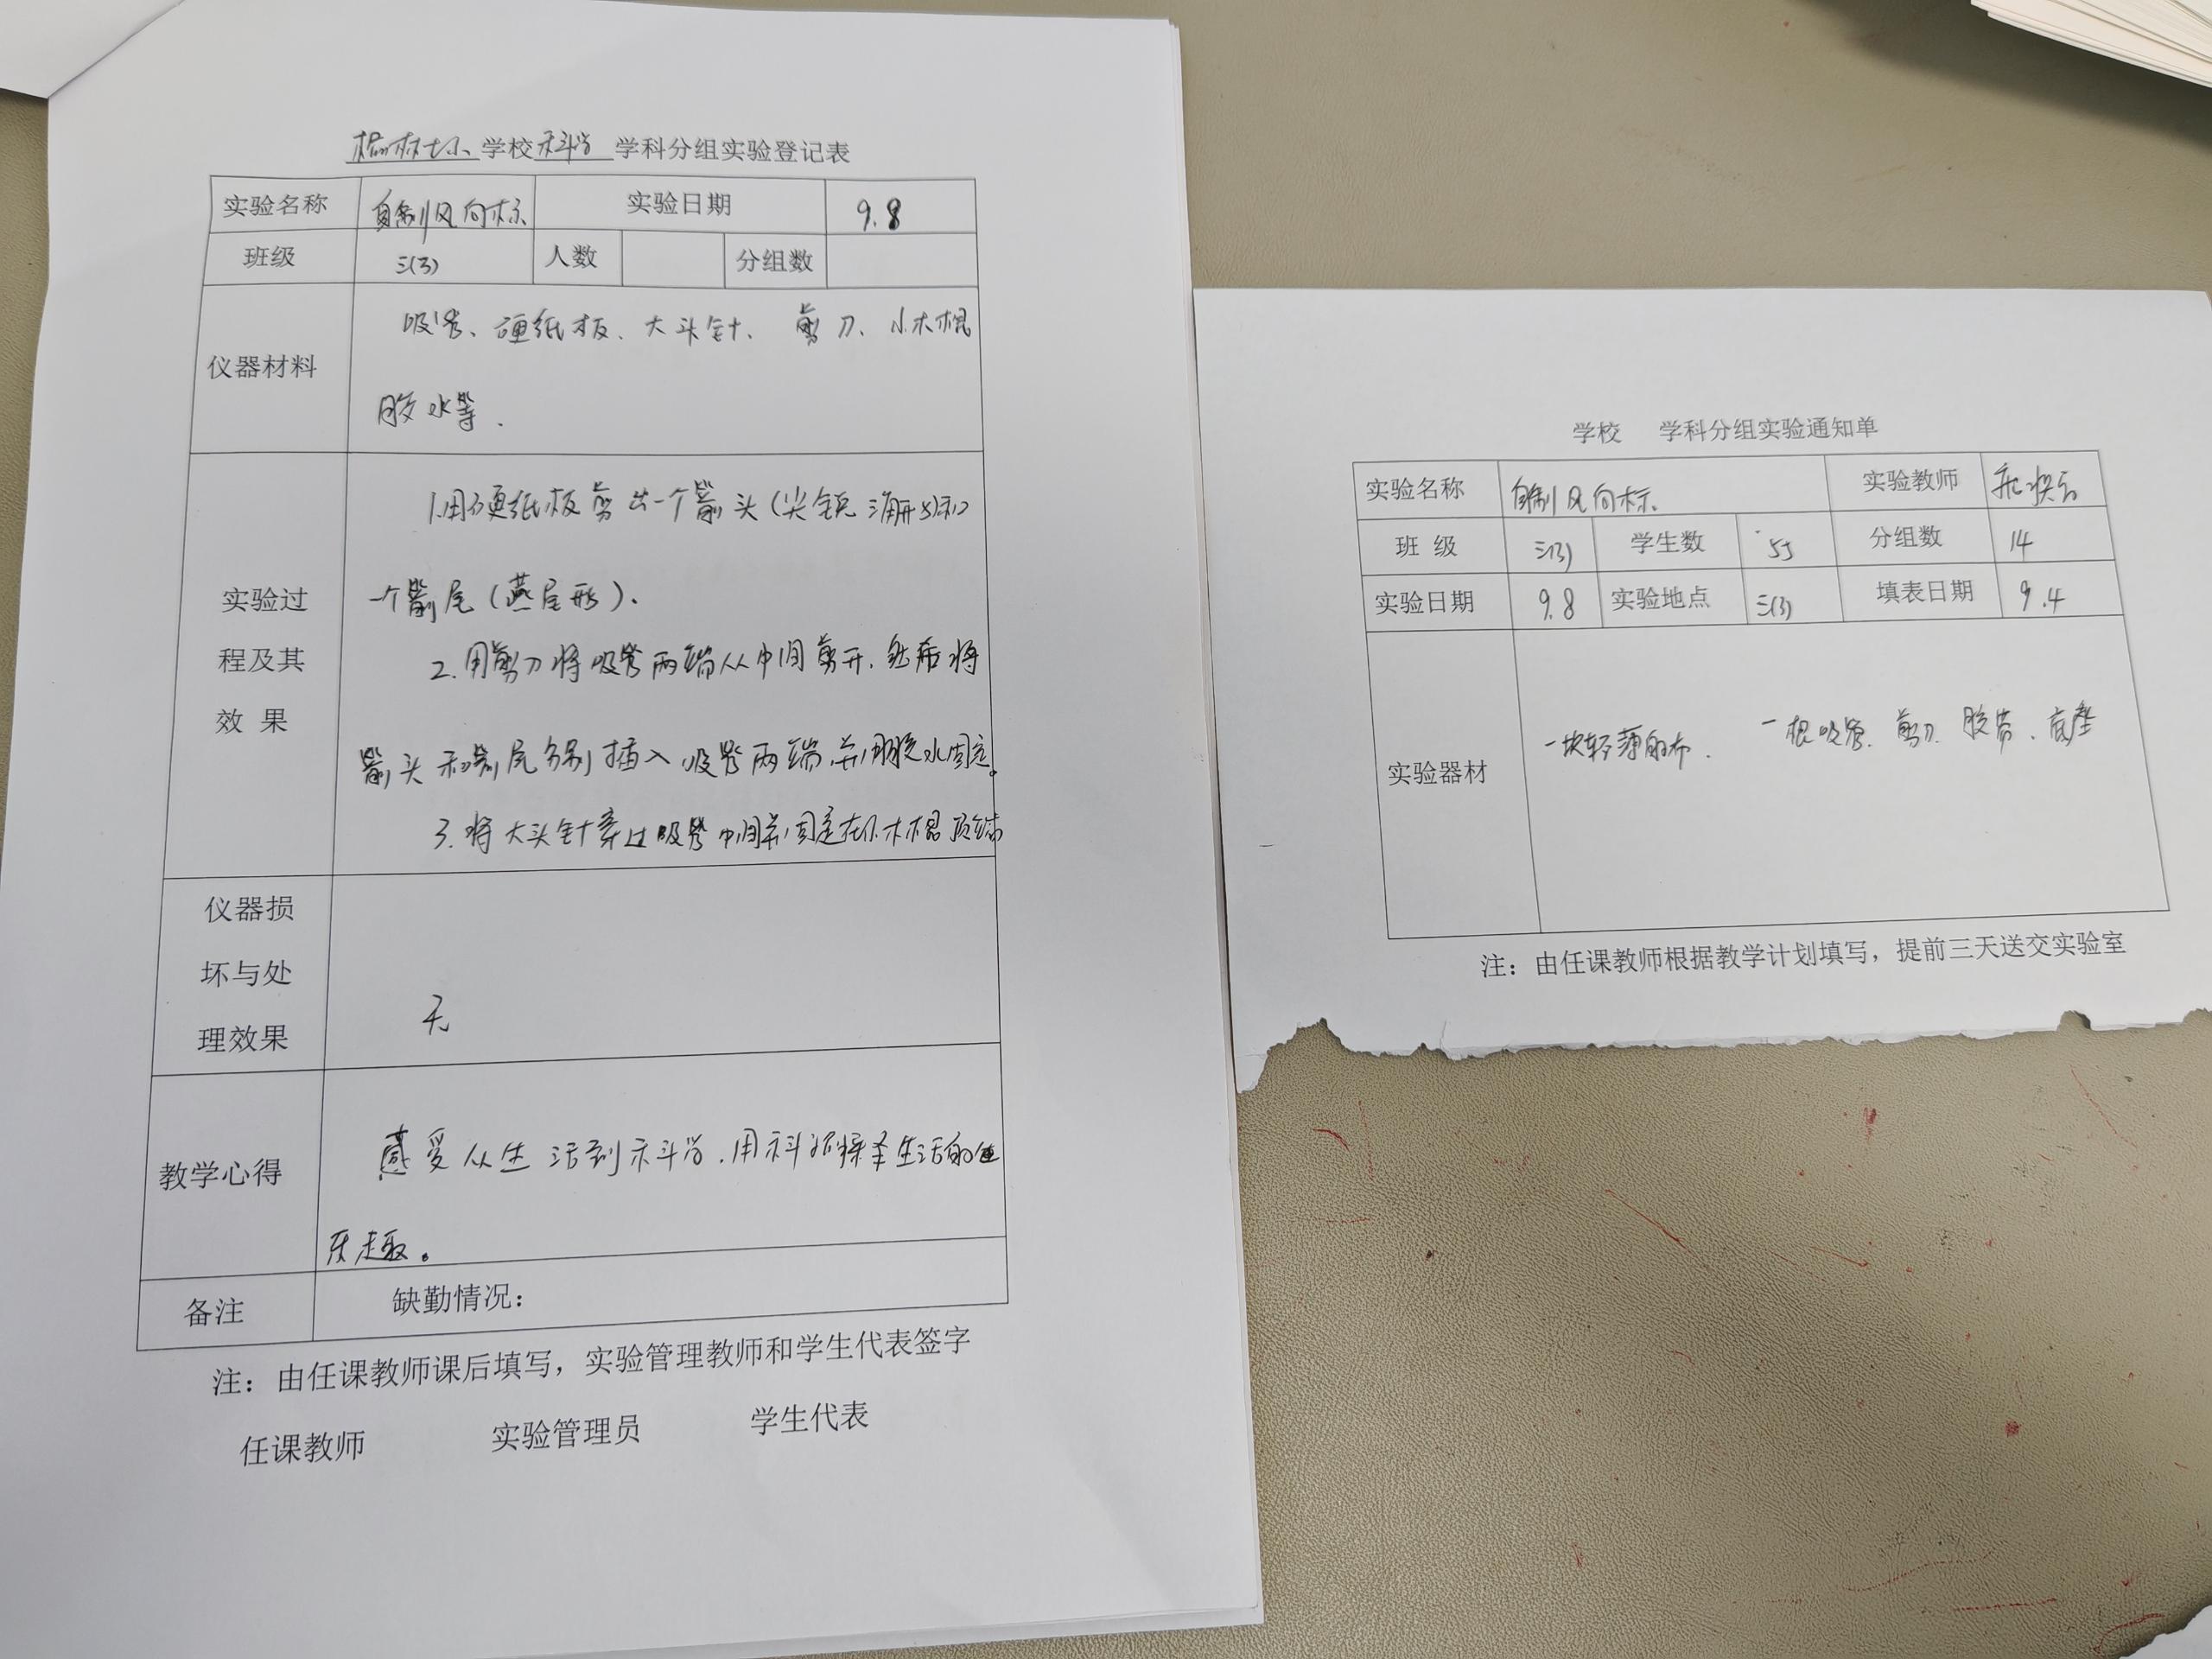 学校 科学 学科分组实验登记表
实验名称 自制风向标 实验日期 9.8
班级 三(3) 人数 分组数
仪器材料
吸管、硬纸板、大头针、剪刀、小木棍
胶水等.
实验过
程及其
效 果
1.用硬纸板剪出一个箭头(尖锐三角形)和
一个箭尾(燕尾形).
2.用剪刀将吸管两端从中间剪开.然后将
箭头和箭尾分别插入吸管两端,并用胶水固定。
3.将大头针穿过吸管中间并固定在小木棍顶端
仪器损
坏与处
理效果
无
教学心得
感受从生活到科学.用科学探究生活的
趣。
备注 缺勤情况：
注：由任课教师课后填写，实验管理教师和学生代表签字
任课教师 实验管理员 学生代表
学校 学科分组实验通知单
实验名称 自制风向标. 实验教师
班 级 三(3) 学生数 55 分组数 14
实验日期 9.8 实验地点 三(3) 填表日期 9.4
实验器材
一块轻薄的布. 一根吸管、剪刀、胶带、底座
注：由任课教师根据教学计划填写，提前三天送交实验室